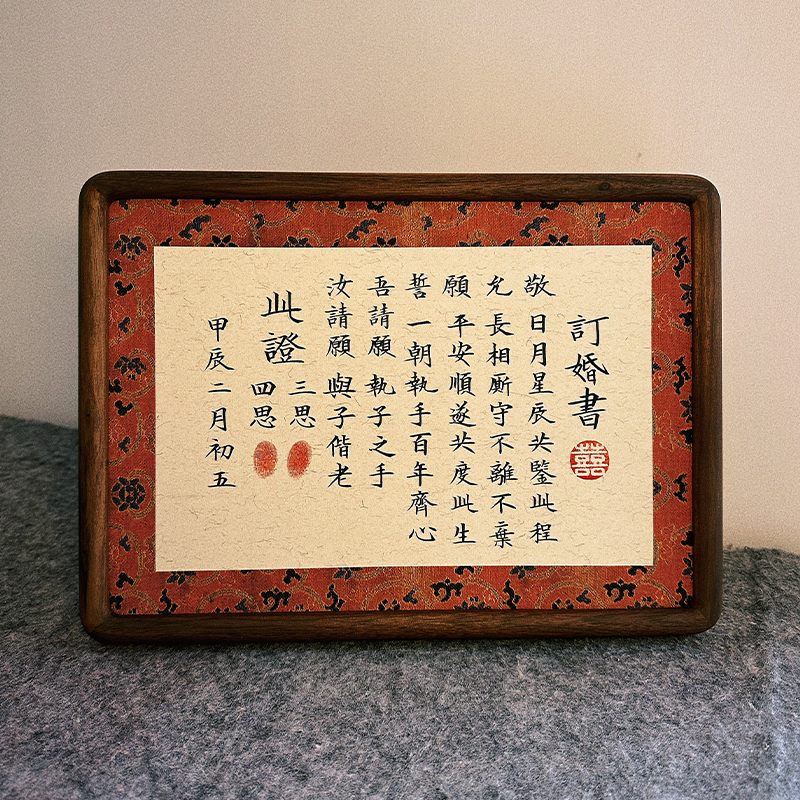 訂婚書
囍
敬 日月星辰共鑒此程
允 長相厮守不離不棄
願 平安順遂共度此生
誓 一朝執手百年齊心
吾請願 執子之手
汝請願 與子偕老
此證
三思
四思
甲辰二月初五